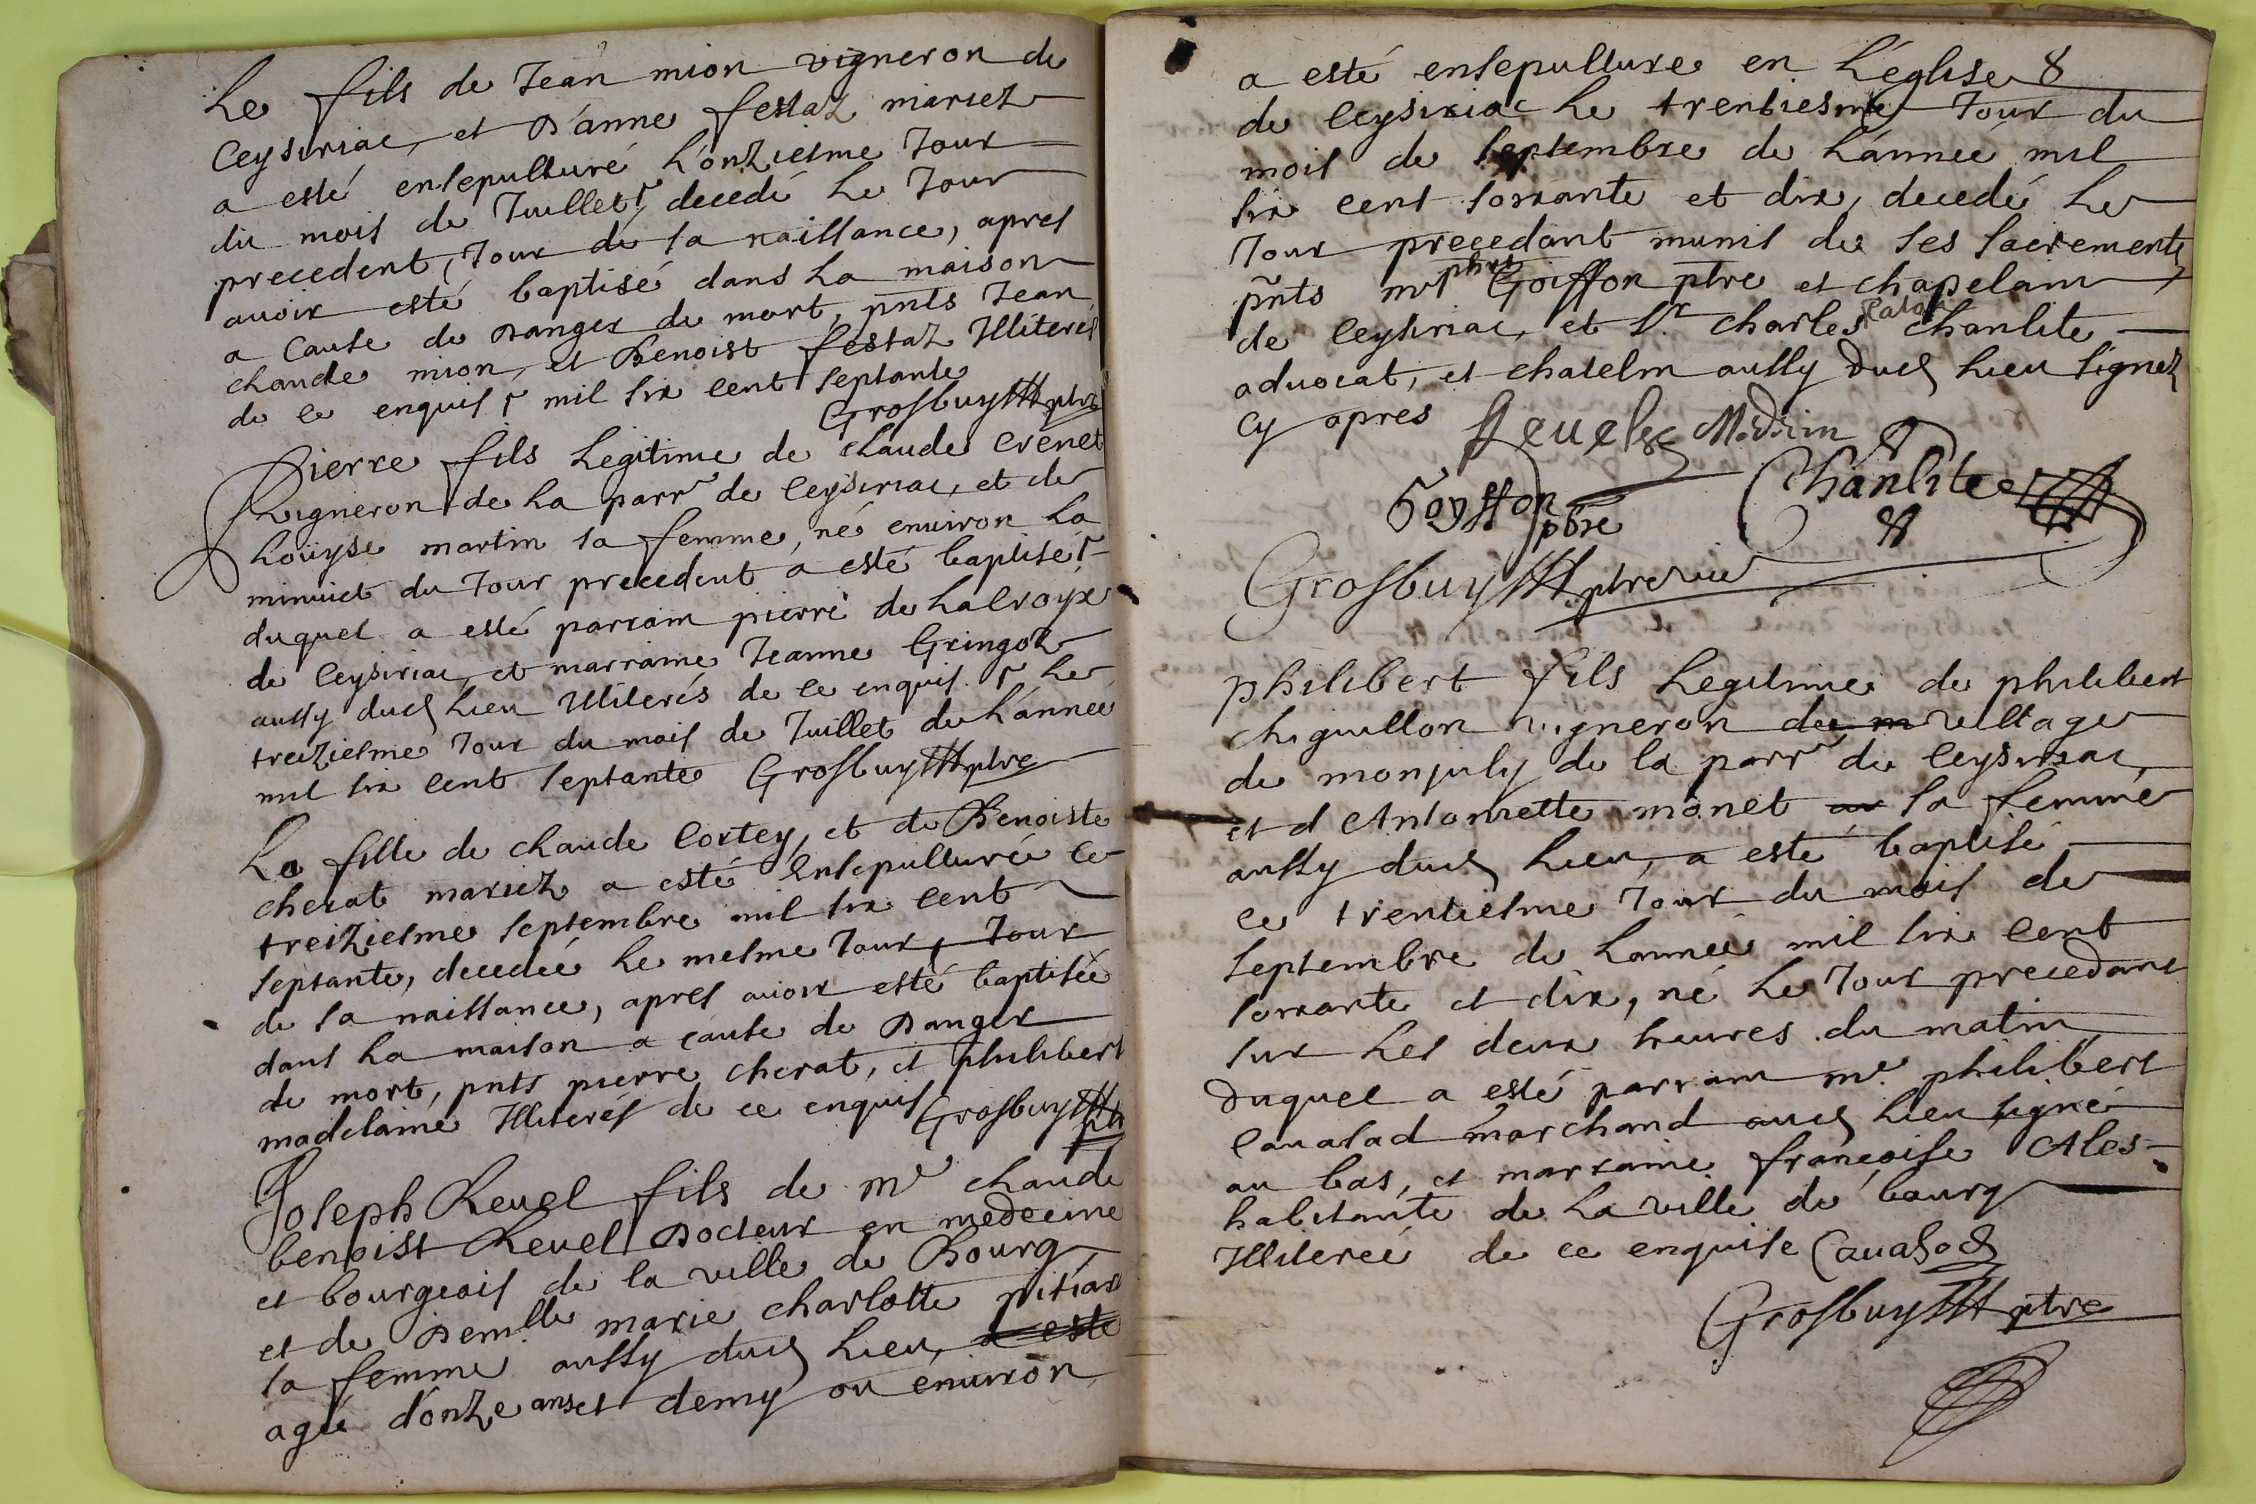 Le fils de Jean mion vigneron de
Ceysiriac, et d'anne festaz mariez
a esté ensepulturé l'onziesme Jour
du mois de Juillet, decedé le Jour
precedent, Jour de sa naissance, apres
avoir esté baptisé dans la maison
a cause de danger de mort, pnts Jean
claude mion, et Benoist festaz Illiterés
de ce enquis mil six cent septante
Grosbuy ptre
Pierre fils legitime de claude crenet
vigneron de la parr de ceysiriac, et de
louyse martin sa femme, né environ la
minuict du Jour precedent a esté baptisé
duquel a esté parrain pierre de lacroyx
de Ceysiriac, et marraine Jeanne Gringoz
aussy dud lieu Illiterés de ce enquis le
treiziesme Jour du mois de Juillet de l'année
mil six cent septante Grosbuy ptre
La fille de claude Cortey, et de Benoiste
cherat mariez a esté Ensepulturée le
treiziesme septembre mil six cent
septante, decedée le mesme Jour, Jour
de sa naissance, apres avoir esté baptisée
dans la maison a cause de danger
de mort, pnts pierre cherat, et philibert
madelaine Illiterés de ce enquis Grosbuy ptr
Joseph Revel fils de Me claude
benoist Revel Docteur en medecine
et bourgeois de la ville de Bourg,
et de Demlle marie charlotte
sa femme aussy dud lieu, a esté
agé d'onze ans et demy ou environ
a esté ensepulturé en l'église
de ceysiriac le trentiesme Jour du
mois de septembre de l'année mil
six cent soixante et dix, decedé le
Jour precedant munis de ses sacrements
phrt
pnts mre Goiffon ptre et chapelain
de ceysiriac, et Sr charles chanlite
advocat, et chatelin aussy dud lieu signez
cy apres Revel Medecin
Goyffon pbre Chanlite
Grosbuy ptre vic
philibert fils legitime de philibert
chiguillon vigneron de m village
de monjuly de la parr de ceysiriac,
et d Antoinette monet au sa femme
aussy dud lieu, a esté baptisé
ce trentiesme Jour du mois de
septembre de l'année mil six cent
soixante et dix, né le Jour precedant
sur les deux heures du matin
duquel a esté parrain me philibert
Cavasad marchand aud lieu signé
au bas, et marraine françoise Ales
habitante de la ville de bourg
Illiterée de ce enquise Cavasod
Grosbuy ptre